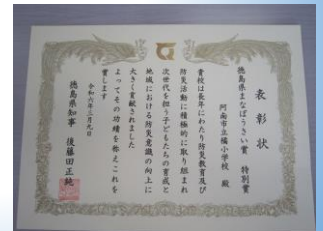 表彰状
徳島県まなぼうさい賞 特別賞
阿南市立橘小学校 殿
貴校は長年にわたり防災教育及び
防災活動に積極的に取り組まれ
次世代を担う子どもたちの育成と
地域における防災意識の向上に
大きく貢献されました
よってその功績を称えこれを
賞します
令和六年三月九日
徳島県知事 後藤田正純